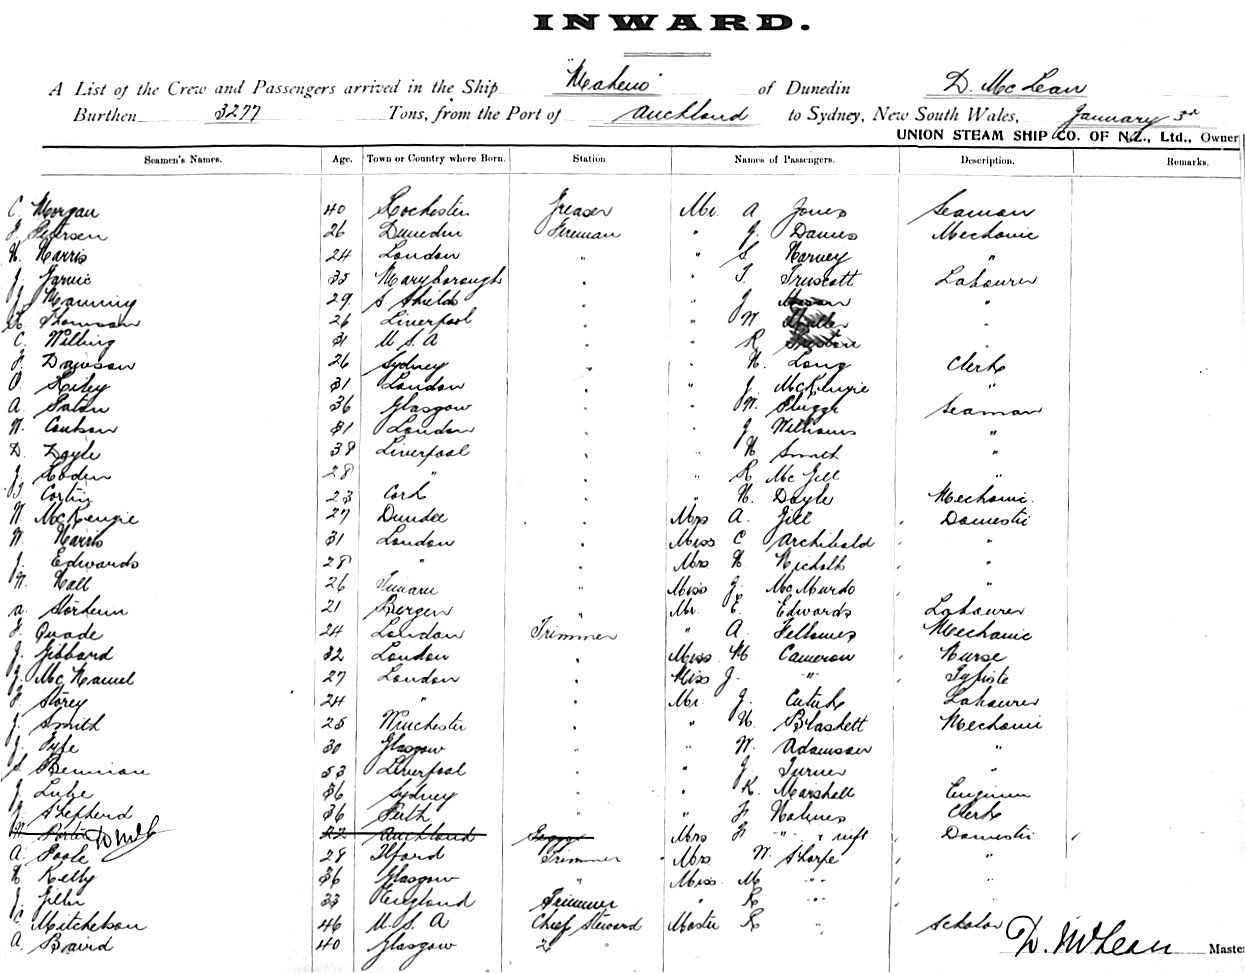 INWARD.
A List of the Crew and Passengers arrived in the Ship "Maheno" of Dunedin D. McLean
Burthen 3277 Tons, from the Port of Auckland to Sydney, New South Wales, January 3rd
UNION STEAM SHIP CO. OF N.Z., Ltd., Owner
Seamen's Names. Age. Town or Country where Born. Station Names of Passengers. Description. Remarks.
C. Morgan 40 Rochester Greaser Mr. A Jones Seaman
F. Petersen 26 Dunedin Fireman " J. Davies Mechanic
H. Harris 24 London " " S Harvey "
J. Jarvie 35 Maryborough " " T. Truscott Labourer
J. Manning 29 S Shields " " J. "
Thomson 26 Liverpool " " W "
C. Wilting 31 U.S.A " R "
F. Dawson 26 Sydney " " H. Long Clerk
O. Riley 31 London " " J. McKenzie "
A. Paton 36 Glasgow " " W. Plugge Seaman
W. Coulson 31 London " " J Williams "
D. Doyle 38 Liverpool " " H Smith "
J. Roden 28 " " " R McGill "
Cortin 23 Cork " " H. Doyle Mechanic
W. McKenzie 27 Dundee " Mrs A. Gill Domestic
W. Harris 31 London " Miss C Archibald "
J. Edwards 28 " " Mrs H Nicholls "
W. Hall 26 Timaru " Miss J. McMurdo "
A. Storheim 21 Bergen " Mr. E. Edwards Labourer
F. Quade 24 London Trimmer " A. Fellowes Mechanic
J. Gibbard 32 London " Miss M Cameron Nurse
J. McNamel 27 London " Miss J. " Typiste
F. Storey 24 " " Mr. J. Labourer
J. Smith 25 Winchester " " H. Blaskett Mechanic
J. Fyfe 30 Glasgow " " W. Adamson "
S Bennion 53 Liverpool " " J Turner "
J. Luke 36 Sydney " " K. Marshall Engineer
J. Shepherd 36 Perth " " F Holmes Clerk
W. Porter D McL 22 Auckland Mrs F " " wife Domestic
A. Poole 28 Ilford Trimmer Mrs W. Sharpe "
H Kelly 36 Glasgow " Miss M " "
J. 33 England Trimmer " R " "
C Mitchelson 46 U.S.A Chief Steward Master R " Scholar
A. Baird 40 Glasgow 2 " D. McLean Master